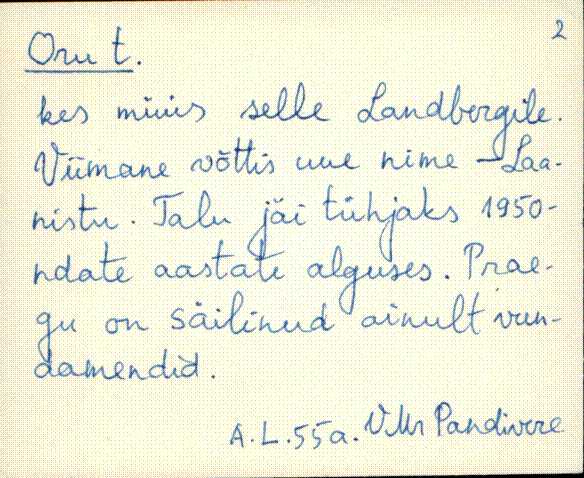 2
Oru t.
kes müüs selle Landbergile.
Viimane võttis uue nime – Laa-
nistu. Talu jäi tühjaks 1950-
ndate aastate alguses. Prae-
gu on säilinud ainult vun-
damendid.
A.L. 55a. VMr Pandivere